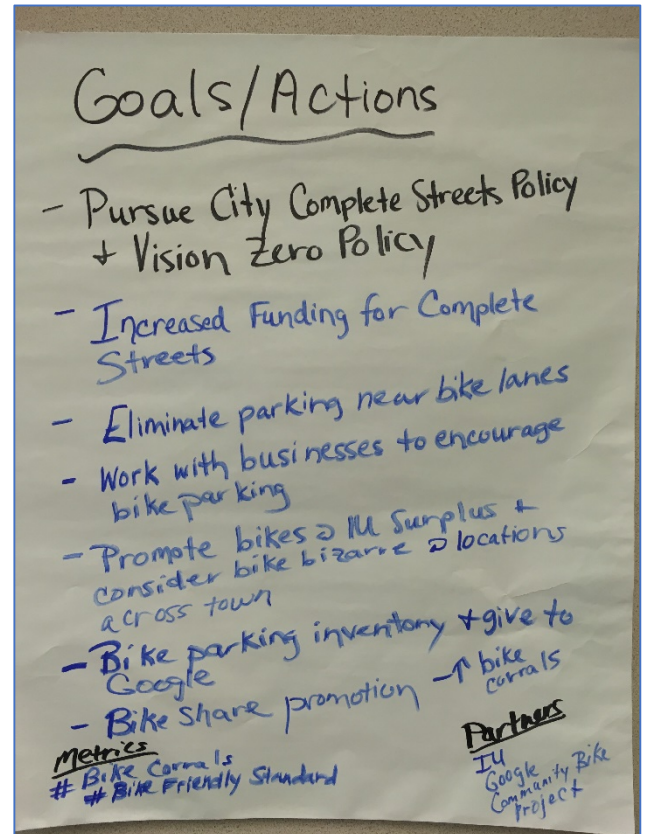 Goals/Actions
- Pursue City Complete Streets Policy
+ Vision Zero Policy
- Increased Funding for Complete
Streets
- Eliminate parking near bike lanes
- Work with businesses to encourage
bike parking
- Promote bikes @ IU Surplus +
consider bike bizarre @ locations
across town
- Bike parking inventory + give to
Google
- Bike share promotion - ↑ bike
corrals
Metrics
# Bike Corrals
# Bike Friendly Standard
Partners
IU
Google
Community Bike
Project